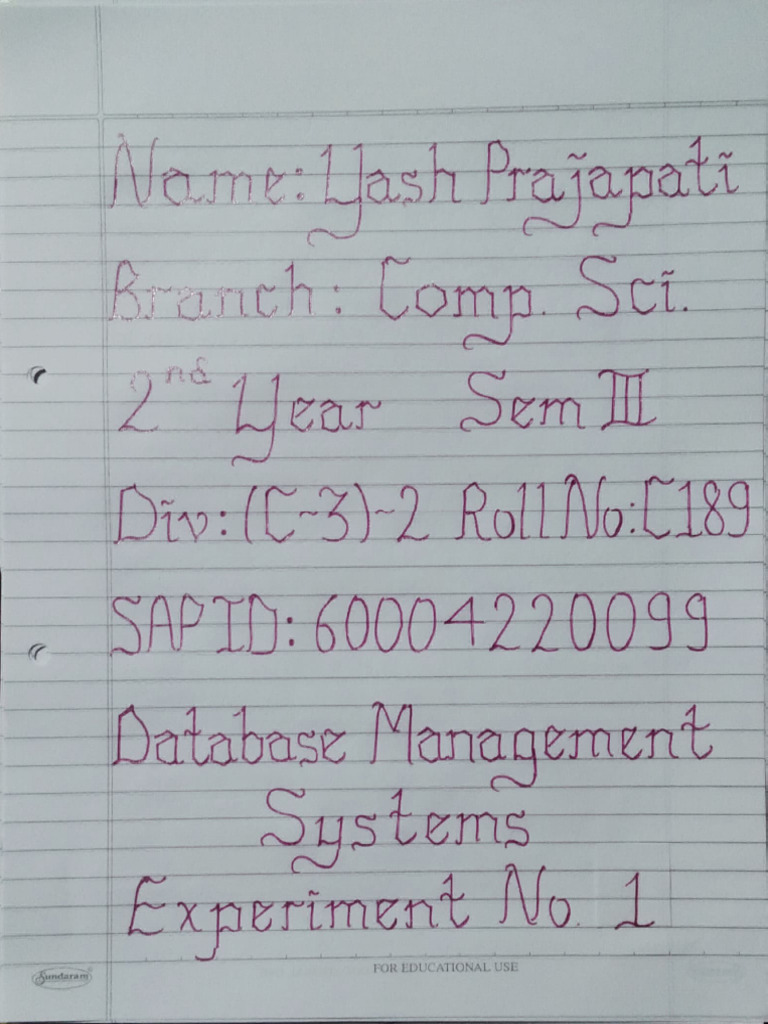 Name: Yash Prajapati
Branch: Comp. Sci.
2nd Year Sem III
Div: (C-3)-2 Roll No: C189
SAP ID: 60004220099
Database Management
Systems
Experiment No. 1
Sundaram
FOR EDUCATIONAL USE